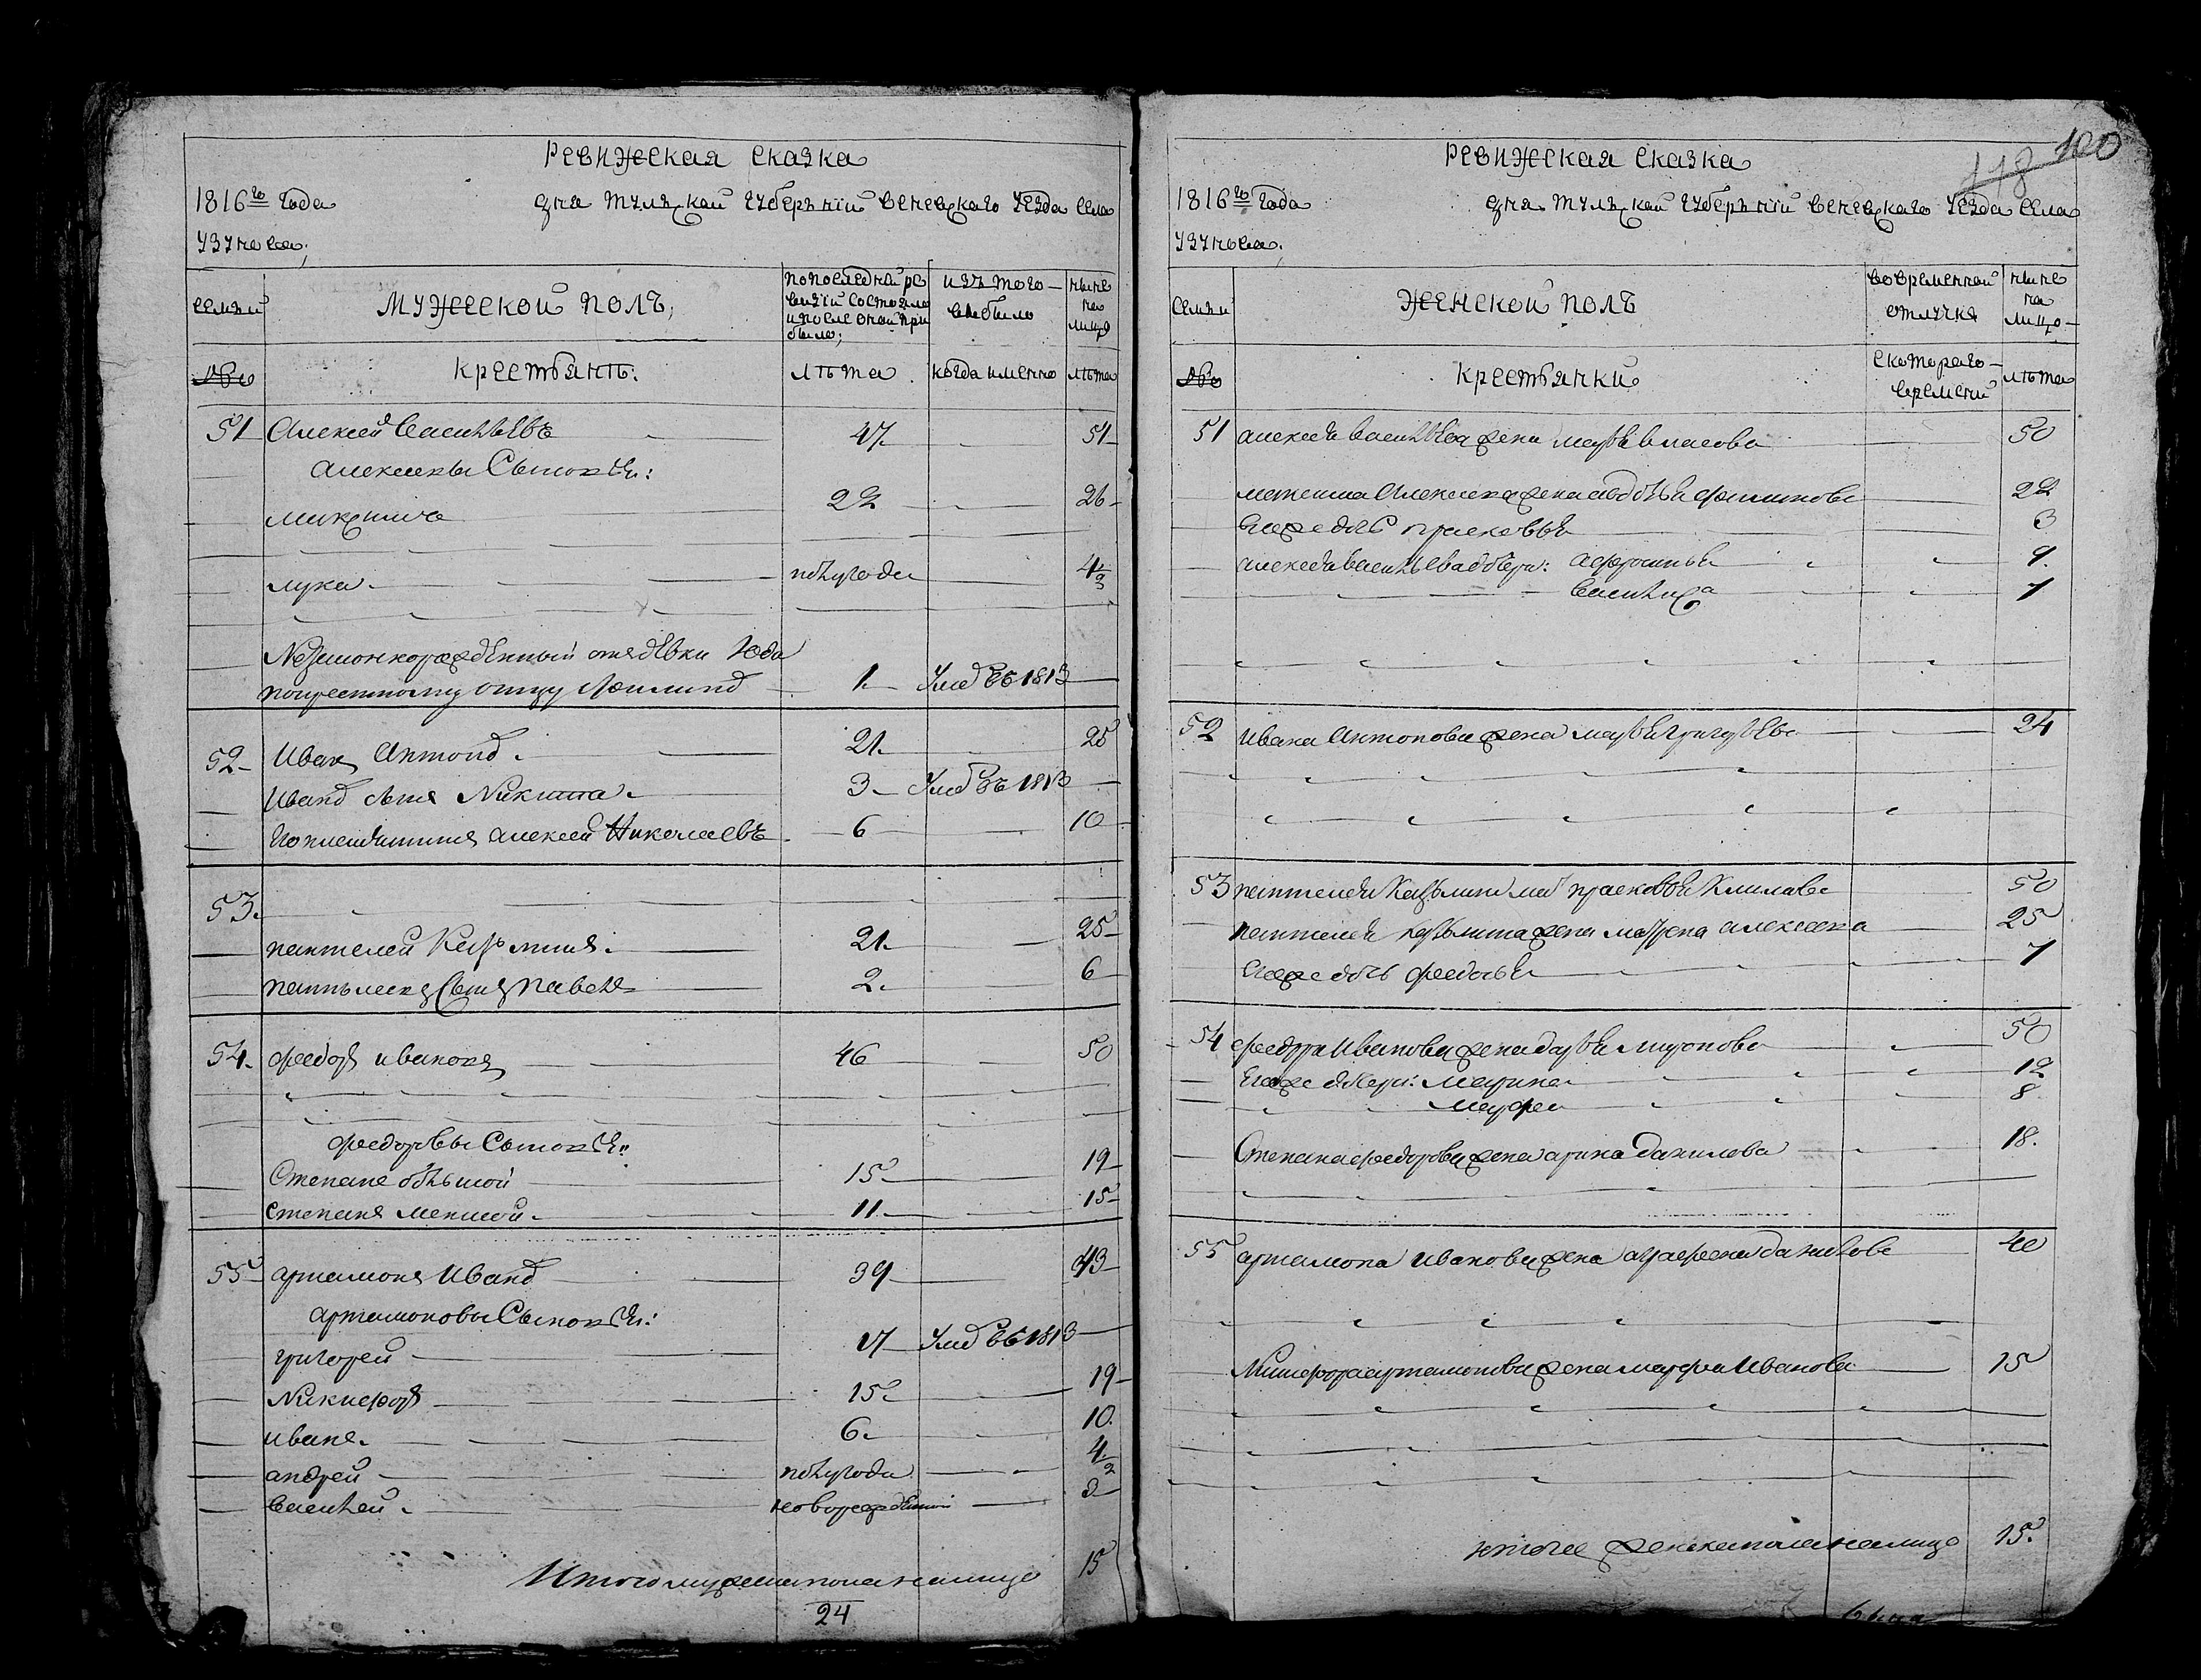 Ревижская сказка
1816го года дня тульской губернии веневского уезда села
узунова;
семьи
мужеской полъ;
попоследней ре
визии состояло
ипосле оной при
было;
изъ того
выбыло
ныне
на
лицо
№о
крестьянъ:
лѣта
когда именно
лѣта
51 Алексей Васильевъ 47 51
алексеевы Сыновья:
максимъ 22 26
лука полугода 4 1/2
1 Умре въ 1813
52 Иванъ Антоновъ 21 25
Ивановъ сынъ Никита 3 Умре въ 1813
племянникъ алексей Николаевъ 6 10
53
пантелей Кузьминъ 21 25
пантелеевъ сынъ павелъ 2 6
54 федоръ ивановъ 46 50
федоровы Сыновья:
Степанъ большой 15 19
степанъ меншой 11 15
55 артамонъ Ивановъ 39 43
артамоновы Сыновья:
григорей 17 Умре въ 1813
Никифоръ 15 19
иванъ 6 10
андрей полугода 4 1/2
василей новорожденной 3
Итого мужеска пола налицо 15
24
Ревижская сказка
118 100
1816го года дня тульской губернии веневского уезда села
узунова;
семьи
женской полъ
вовременной
отлучке
ныне
на
лицо
№о
крестьянки
скотораго
времени
лѣта
51 алексея васильева жена марья власова 50
максима Алексеева жена авдотья филипова 22
Егоже дочь прасковья 3
алексея васильева дочери: афросинья 9
василиса 7
52 Ивана Антонова жена марья григорьева 24
53 пантелея Кузьмина мать прасковья Климова 50
пантелея кузьмина жена матрена алексеева 25
Егоже дочь федосья 7
54 федора Иванова жена дарья миронова 50
Егоже дочери: марина 12
марфа 8
Степана федорова жена арина данилова 18
55 артамона иванова жена аграфена данилова 40
Никифора артамонова жена марфа Иванова 15
итого женска пола налицо 15